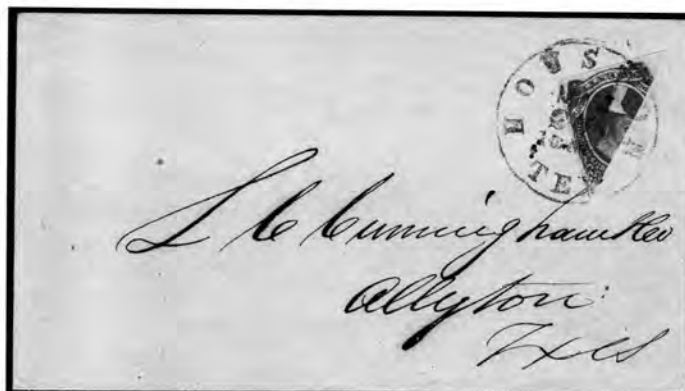 HOUS N
TEX
L C Cunningham & Co
Alleyton
Txas